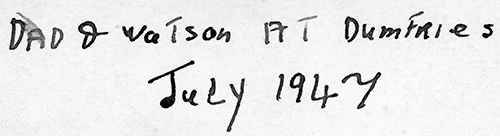 DAD & WATSON AT DUMFRIES
JULY 1947